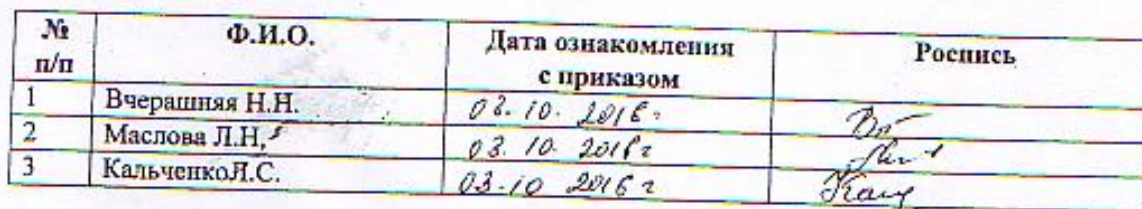 № п/п Ф.И.О. Дата ознакомления с приказом Роспись
1 Вчерашняя Н.Н. 03.10.2016г
2 Маслова Л.Н. 03.10.2016г
3 КальченкоЛ.С. 03.10 2016г